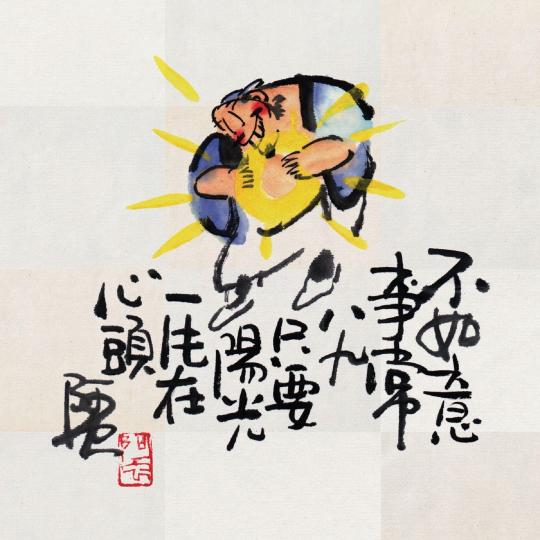 不如意
事常
八九
只要
陽光
一直在
心頭